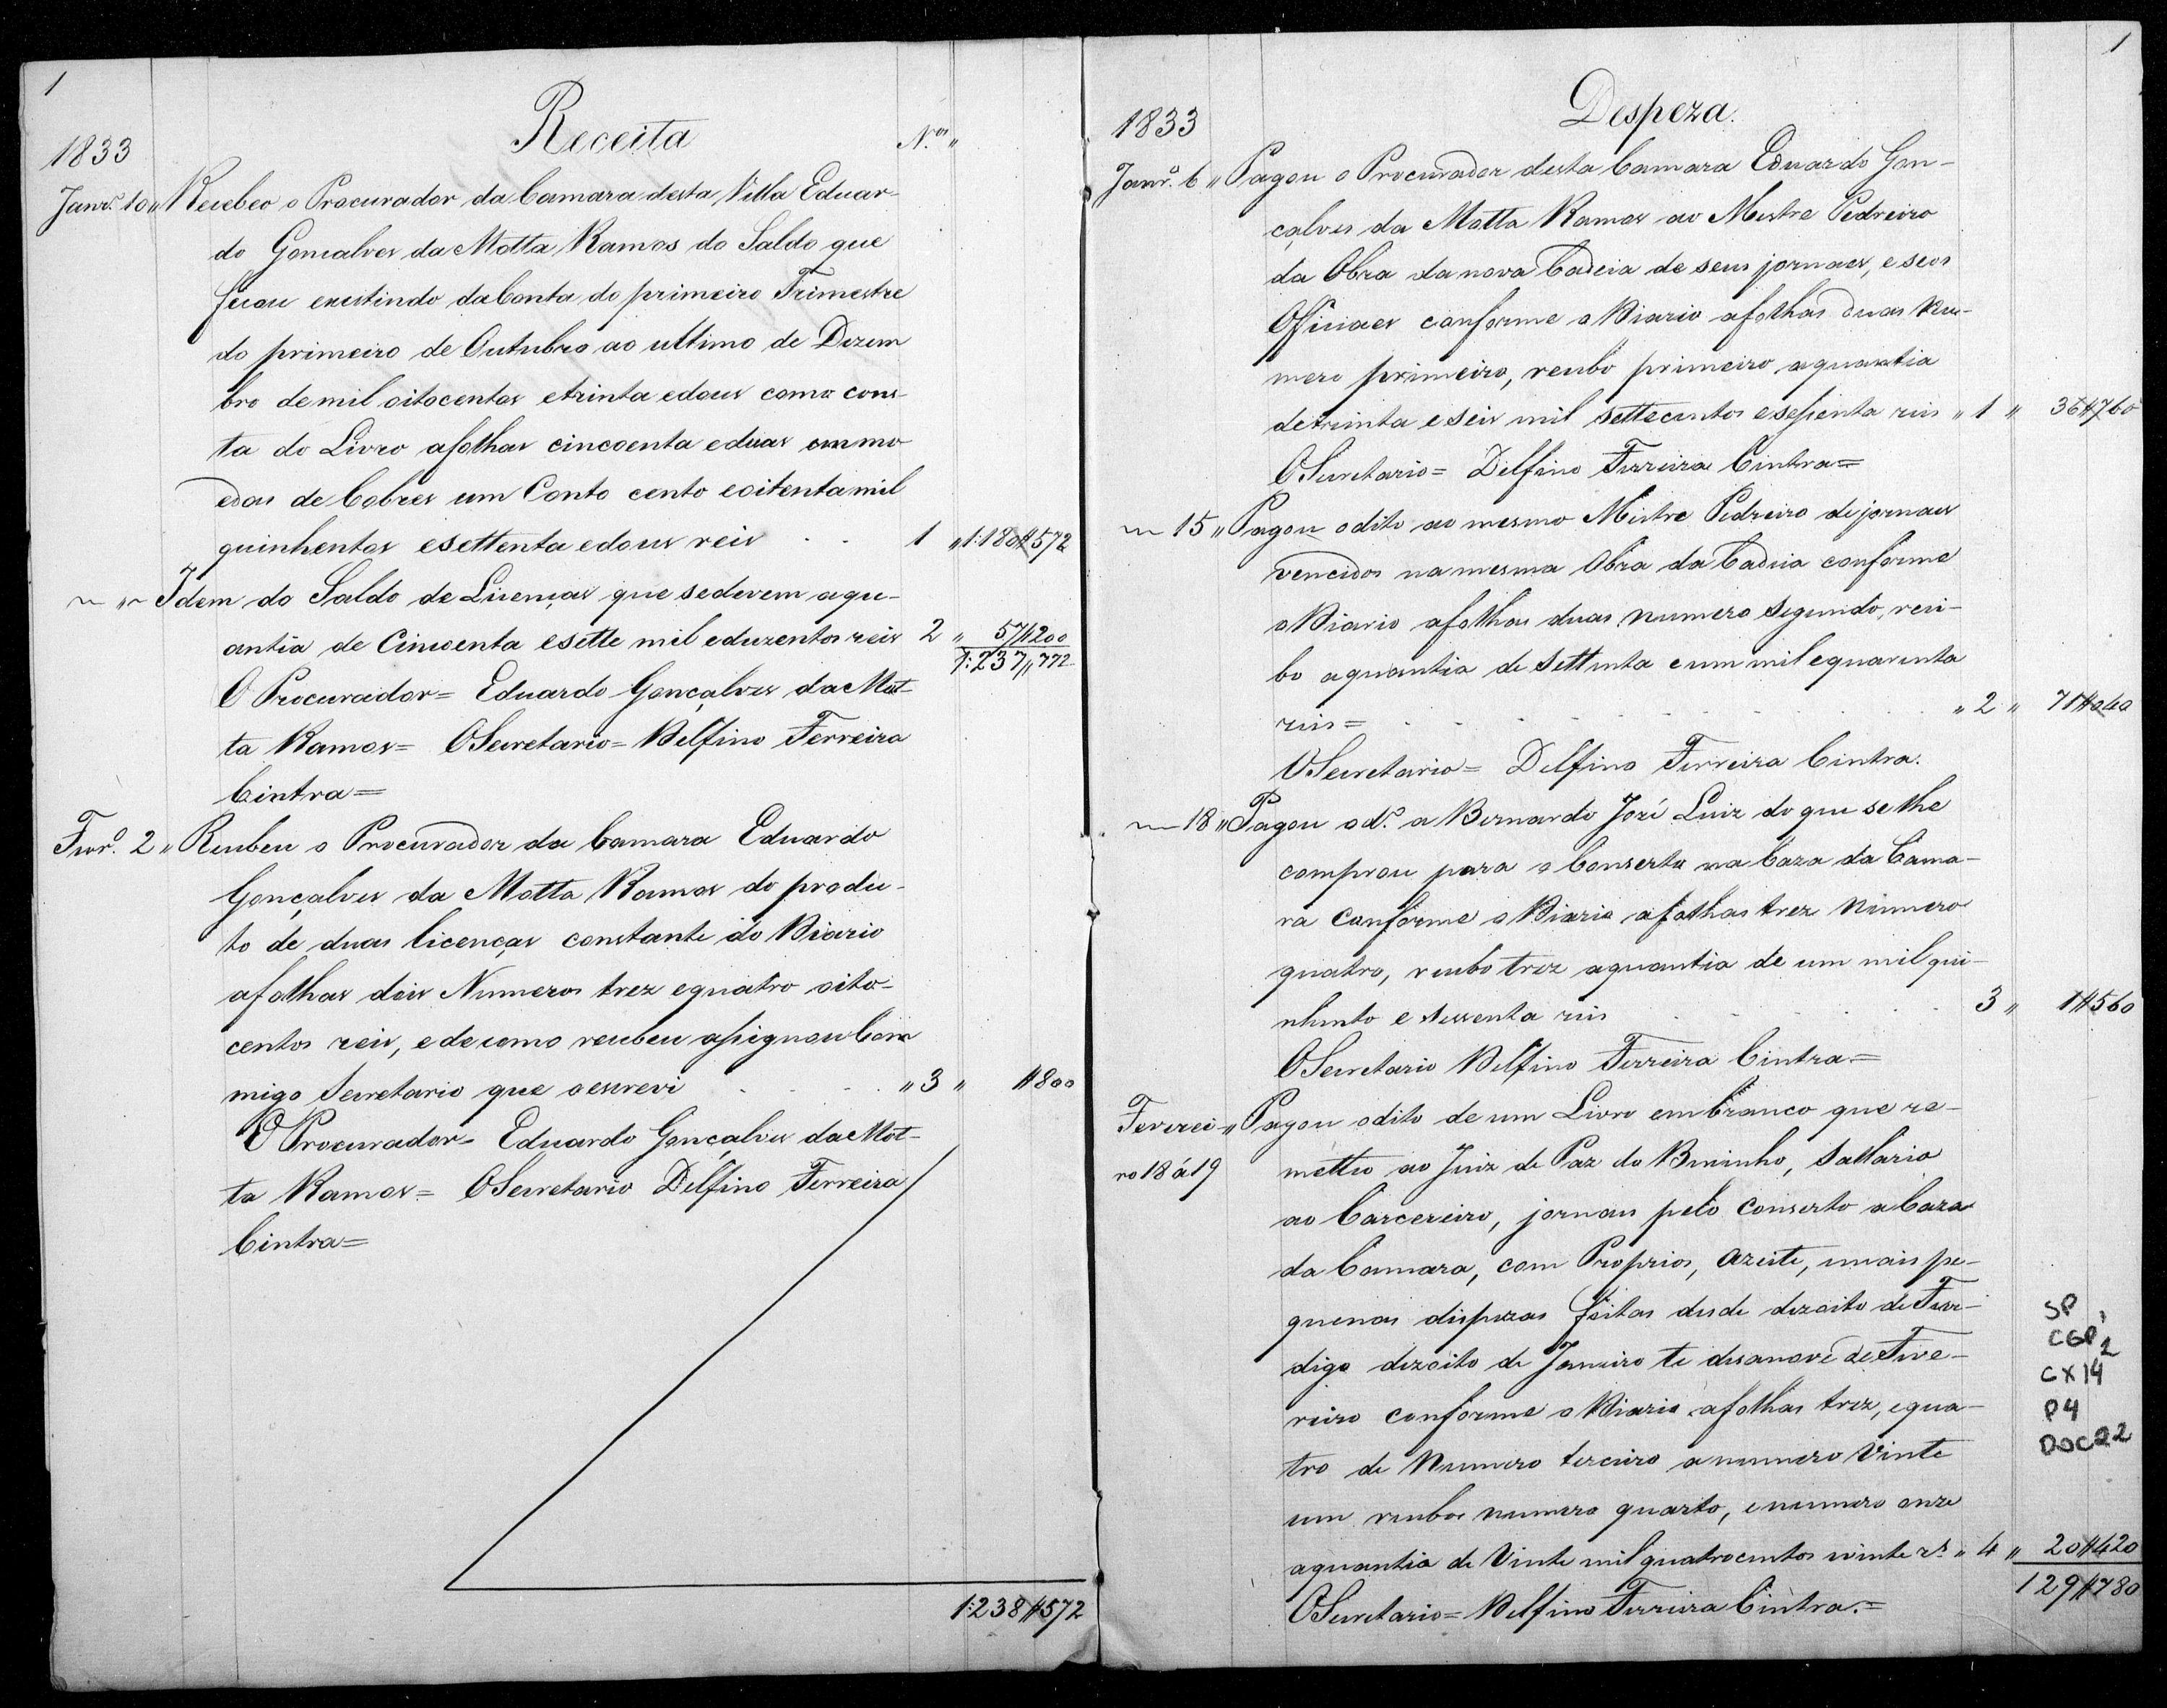 1
Receita
N.os "
1833
Janr.o 10 " Recebeo o Procurador da Camara desta Villa Eduar-
do Goncalves da Motta Ramos do Saldo que
ficou exestindo da Conta do primeiro Trimestre
do primeiro de Outubro ao ultimo de Dezem
bro de mil oitocentos etrinta edous como cons-
ta do Livro afolhas cincoenta eduas em mo
edas de Cobres um Conto cento eoitenta mil
quinhentos esettenta edous reis . . 1 " 1:180#572
~ " ~ Idem do Saldo de Licenças que sederem aqu-
antia de Cincoenta esette mil eduzentos reis 2 " 57#200
1:237,,772
O Procurador= Eduardo Gonçalves da Mot-
ta Ramos= OSecretario= Delfino Ferreira
Cintra=
Fevr.o 2 " Recebeu o Procurador da Camara Eduardo
Gonçalves da Motta Ramos do produ-
to de duas licenças constante do Diario
afolhas dois Numeros trez equatro oito-
centos reis, edecomo recebeu assignou Com
migo Secretario que oescrevi . . . . " 3 " #800
O Procurador- Eduardo Gonçalves da Mot-
ta Ramos= OSecretario Delfino Ferreira
Cintra=
1:238#572
1
Despeza.
1833
Janr.o 6 " Pagou o Procurador desta Camara Eduardo Gon-
çalves da Motta Ramos ao Mestre Pedreiro
da Obra da nova Cadeia de seus jornaes, e seos
Officiaes conforme o Diario afolhas duas Nu-
mero primeiro, recibo primeiro aquantia
detrinta eseis mil settecentos esessenta reis " 1 " 36#760
OSecretario= Delfino Ferreira Cintra=
~ 15 " Pagou odito ao mesmo Mestre Pedreiro de jornaes
vencidos na mesma Obra da Cadeia conforme
o Diario afolhas duas numero segundo, reci-
bo aquantia de settenta eum mil equarenta
reis= . . . . . . . " 2 " 71#040
OSecretario= Delfino Ferreira Cintra.
~ 18 " Pagou od.o a Bernardo José Luiz do que selhe
comprou para o Conserto na Caza da Cama-
ra conforme o Diario afolhas trez Numero
quatro, recibo trez aquantia de um mil qui-
nhento e sessenta reis . . . . . 3 " 1#560
OSecretario Delfino Ferreira Cintra.=
Feverei- " Pagou odito de um Livro embranco que re-
ro 18 á 19 metteu ao Juiz de Paz do Bininho, Sallario
ao Carcereiro, jornaes pelo Conserto a Caza
da Camara, com Proprios, Azeite, emais pe-
quenas dispezas feitas desde dezoito de Feve-
digo dezoito de Janeiro te desanove de Feve-
reiro conforme o Diario afolhas trez, equa-
tro de Numero terceiro a numero Vinte
um recibos numero quarto, enumero onze
aquantia de Vinte mil quatrocentos evinte rs. " 4 " 20#420
129#780
OSecretario= Delfino Ferreira Cintra.=
SP 1
CGP 2
CX 14
P4
DOC 22